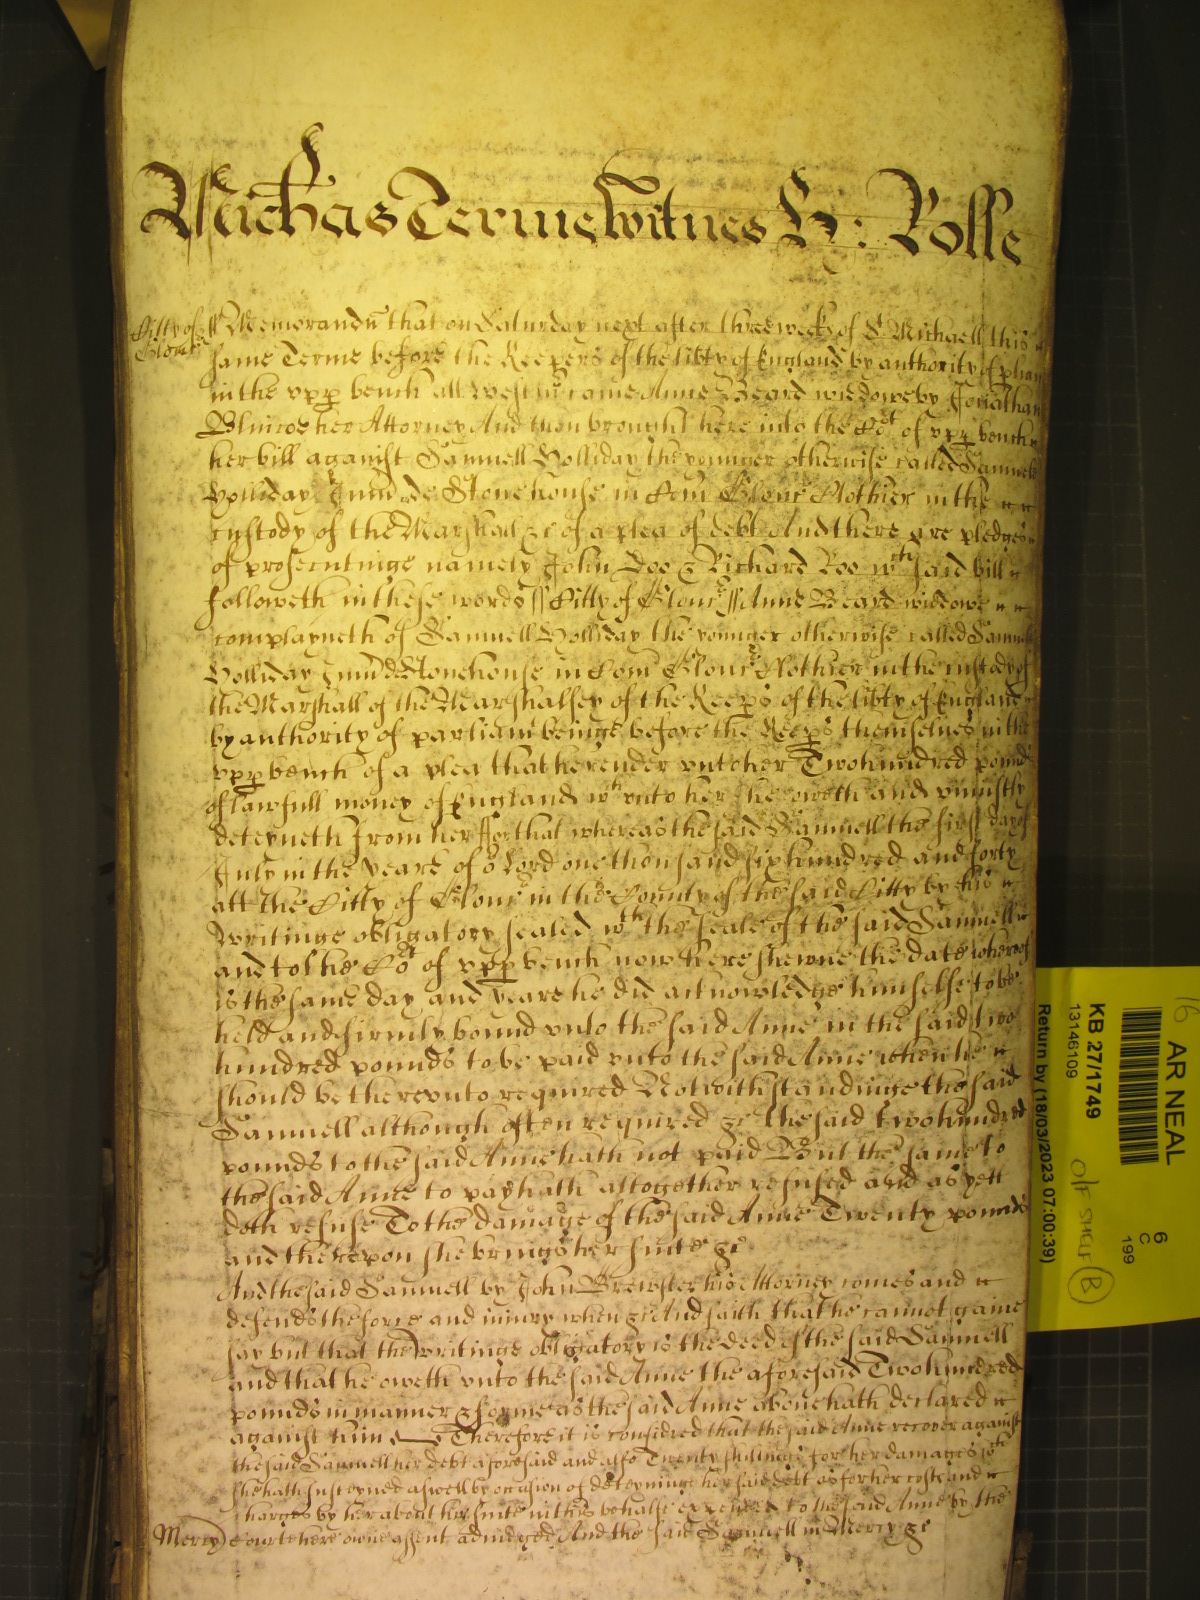 Michas Terme Witnes H: Rolle
Citty of Glouc
ss Memorandu that on Saturday next after three weeks of St Michaell this
same Terme before the Keepers of the libty of England by authority of parliam
in the upp bench att Westmr came Anne Beard widowe by Jonathan
Blincoe her Attorney And then brought here into the Cot of upp bench
her bill against Samuell Holliday the younger otherwise called Samuell
Holliday Junio de Stonehouse in Com Glouc Clothier in the
custody of the Marshall &c of a plea of debt And there are pledges
of prosecutinge namely John Doo & Richard Roo wch said bill
followeth in these words ss Citty of Glouc ss Anne Beard widowe
complayneth of Samuell Holliday the younger otherwise called Samuell
Holliday Junio de Stonehouse in Com Glouc Clothier in the custody of
the Marshall of the Marshalsey of the Keeps of the libty of England
by authority of parliam beinge before the Keeps themselves in the
upp bench of a plea that he render unto her Two hundred pounds
of lawfull money of England wch unto her he oweth and uniustly
deteyneth from her ffor that whereas the said Samuell the first day of
July in the yeare of or Lord one thousand six hundred and forty
att the Citty of Glouc in the County of the said Citty by his
Writinge obligatory sealed wth the seale of the said Samuell
and to the Cot of upp bench now here shewne the date whereof
is the same day and yeare he did acknowledge himselfe to be
held and firmly bound unto the said Anne in the said two
hundred pounds to be paid unto the said Anne when he
should be thereunto required Notwithstandinge the said
Samuell although often required &c the said two hundred
pounds to the said Anne hath not paid But the same to
the said Anne to pay hath altogether refused and as yett
doth refuse To the damage of the said Anne Twenty pounds
and thereupon she brings her suite &c
And the said Samuell by John Brewster his Attorney comes and
defends the force and iniury when &c And saith that he cannot gaine
say but that the writinge obligatory is the deed of the said Samuell
and that he oweth unto the said Anne the aforesaid Two hundred
pounds in manner & forme as the said Anne above hath declared
against him Therefore it is considred that the said Anne recover against
the said Samuell her debt aforesaid and alsoe Twenty shillings for her damages wch
she hath susteyned aswell by occasion of deteyninge her said debt as for her costs and
charges by her about her suite in this behalfe expended to the said Anne by the
Mercy
Court here owne assent adiudged And the said Samuell in Mercy &c
16
AR NEAL
6
C
199
KB 27/1749
13146109
O/F SHELF B
Return by (18/03/2023 07:00:39)